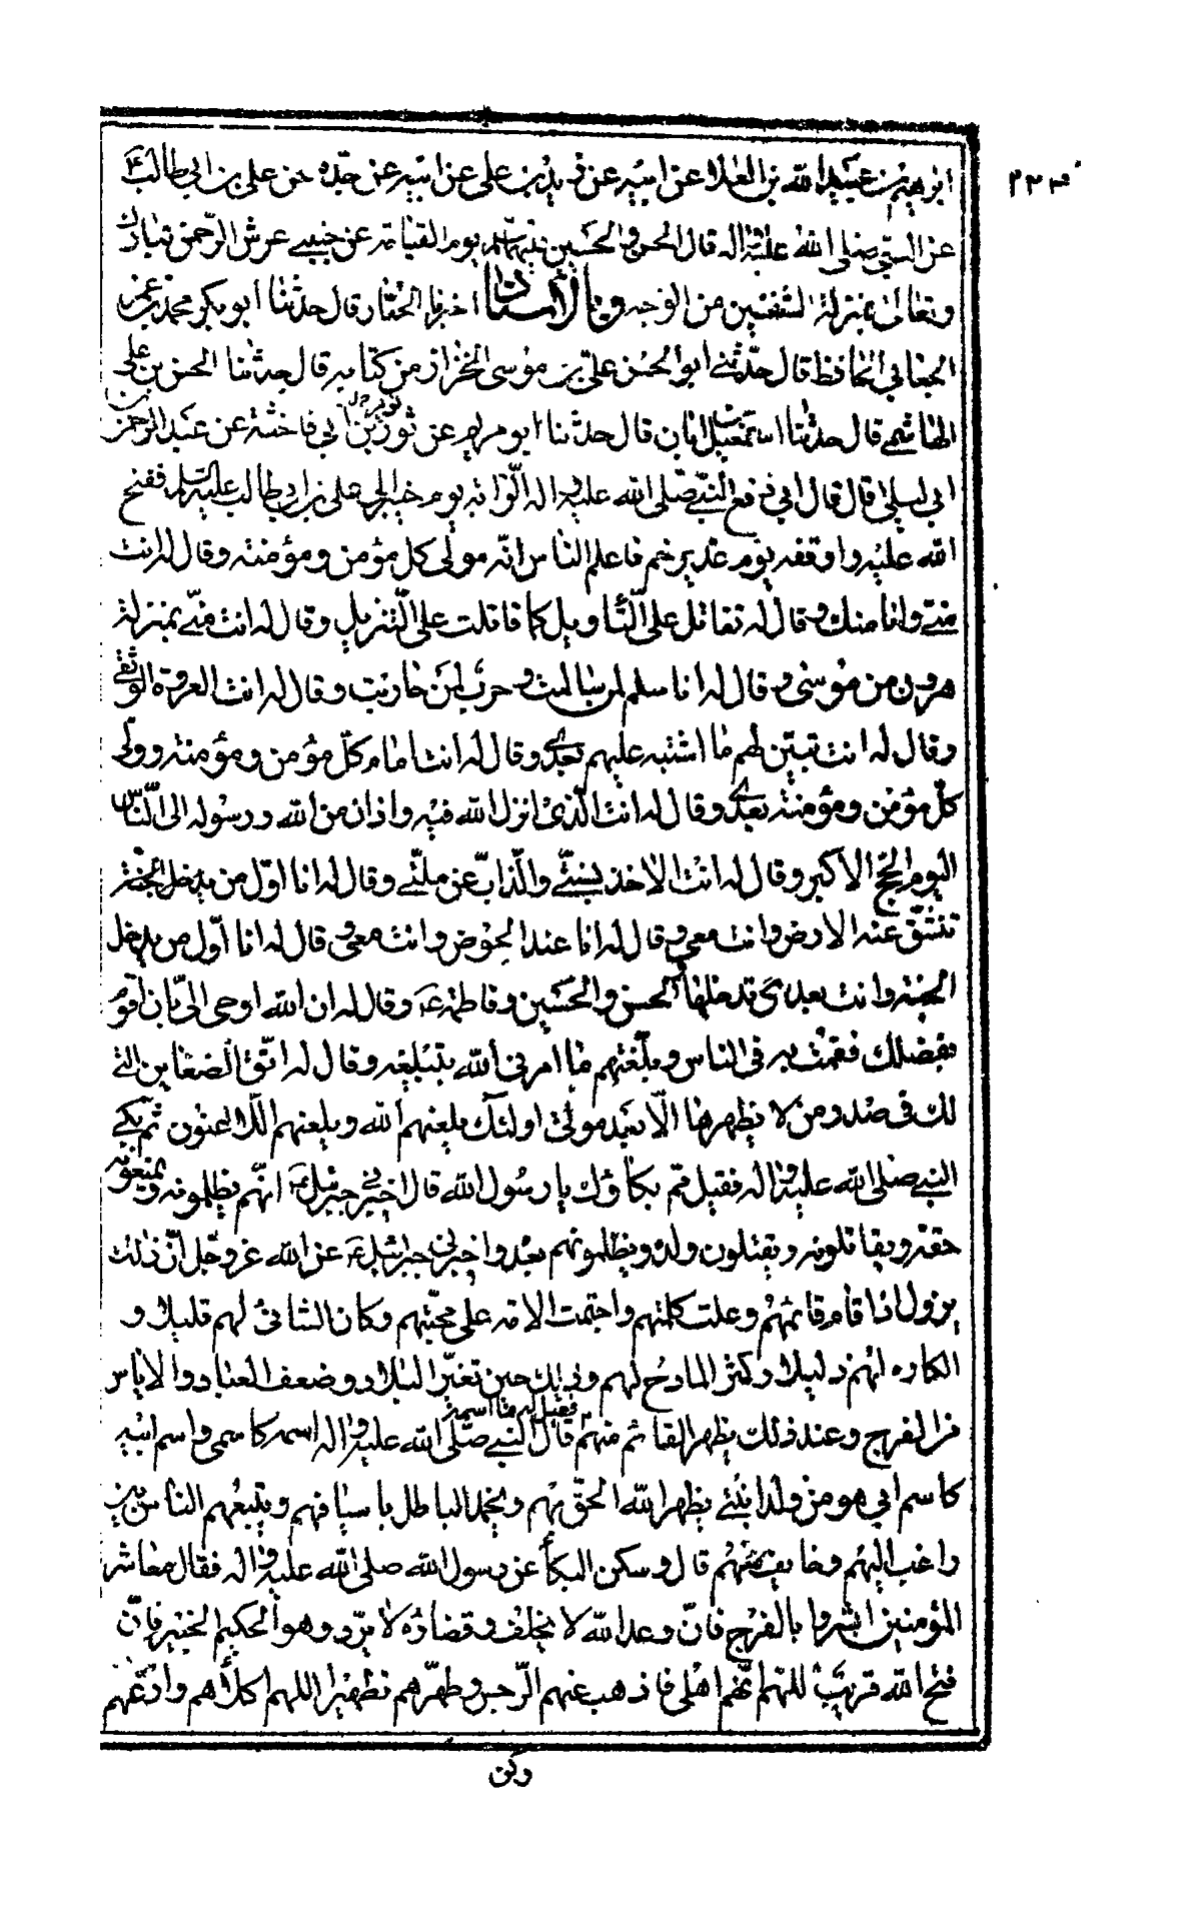 ٢٢٣
ابرهيم بن عبيد الله بن العلا عن ابيه عن زيد بن علي عن ابيه عن جده عن علي بن ابي طالب ع
عن النبي صلى الله عليه واله قال الحسن والحسين يوم القيامة عن جنبي عرش الرحمن تبارك
وتعالى بمنزلة الشنفين من الوجه وبالاسناد اخبرنا الحفار قال حدثنا ابو بكر محمد بن عمر
الجعابي الحافظ قال حدثني ابو الحسن علي بن موسى الخزاز من كتابه قال حدثنا الحسن بن علي
الهاشمي قال حدثنا اسمعيل بن ابان قال حدثنا ابو مريم عن ثوير بن ابي فاختة عن عبد الرحمن بن
ابي ليلى قال قال ابي دفع النبي صلى الله عليه واله الراية يوم خيبر الى علي بن ابي طالب عليه السلم ففتح
الله عليه واوقفه يوم غدير خم فاعلم الناس انه مولى كل مؤمن ومؤمنة وقال له انت
مني وانا منك وقال له تقاتل على التأويل كما قاتلت على التنزيل وقال له انت مني بمنزلة
هرون من موسى وقال له انا سلم لمن سالمت وحرب لمن حاربت وقال له انت العروة الوثقى
وقال له انت تبين لهم ما اشتبه عليهم بعدي وقال له انت امام كل مؤمن ومؤمنة وولي
كل مؤمن ومؤمنة بعدي وقال له انت الذي انزل الله فيه واذان من الله ورسوله الى الناس
اليوم الحج الاكبر وقال له انت الاخذ بسنتي والذاب عن ملتي وقال له انا اول من يدخل الجنة
تنشق عنه الارض وانت معي وقال له انا عند الحوض وانت معي وقال له انا اول من يدخل
الجنة وانت بعدي تدخلها والحسن والحسين وفاطمة ع وقال له ان الله اوحى الي بان اقوم
بفضلك فقمت به في الناس وبلغتهم ما امرني الله بتبليغه وقال له اتق الضغاين التي
لك في صدور من لا يظهرها الا بعد موتي اولئك يلعنهم الله ويلعنهم اللاعنون ثم بكى
النبي صلى الله عليه واله فقيل مم بكاؤك يا رسول الله قال اخبرني جبرئيل ع انهم يظلمونه ويمنعونه
حقه ويقاتلونه ويقتلون ولده ويظلمونهم بعده واخبرني جبرئيل ع عن الله عز وجل ان ذلك
يزول اذا قام قائمهم وعلت كلمتهم واجتمعت الامة على محبتهم وكان الشانئ لهم قليلا و
الكاره لهم ذليلا وكثر المادح لهم وذلك حين تغير البلاد وضعف العباد والاياس
من الفرج وعند ذلك يظهر القائم منهم فقيل له ما اسمه قال النبي صلى الله عليه واله اسمه كاسمي واسم ابيه
كاسم ابي هو من ولد ابنتي يظهر الله الحق بهم ويخمد الباطل باسيافهم ويتبعهم الناس بين
راغب اليهم وخايف منهم قال وسكن البكاء عن رسول الله صلى الله عليه واله فقال معاشر
المؤمنين ابشروا بالفرج فان وعد الله لا يخلف وقضاؤه لا يرد وهو الحكيم الخبير فان
فتح الله قريب اللهم انهم اهلي فاذهب عنهم الرجس وطهرهم تطهيرا اللهم اكلأهم وارعهم
وكن